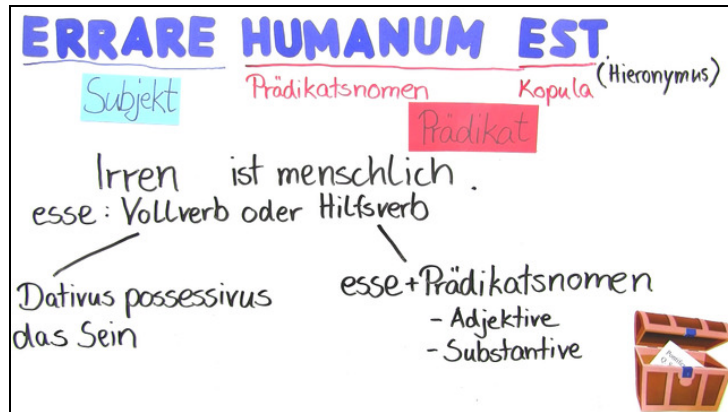 ERRARE HUMANUM EST
(Hieronymus)
Subjekt Prädikatsnomen Kopula
Prädikat
Irren ist menschlich.
esse: Vollverb oder Hilfsverb
Dativus possessivus
das Sein
esse + Prädikatsnomen
- Adjektive
- Substantive